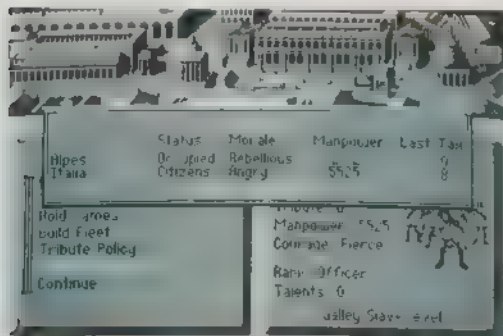 Status Morale Manpower Last Tax
Alpes Occupied Rebellious 0
Italia Citizens Angry 5525 8
Hold Games
Build Fleet
Tribute Policy
Continue
Tribute 0
Manpower 5525
Courage Fierce
Rank Officer
Talents 0
Galley Slave Level